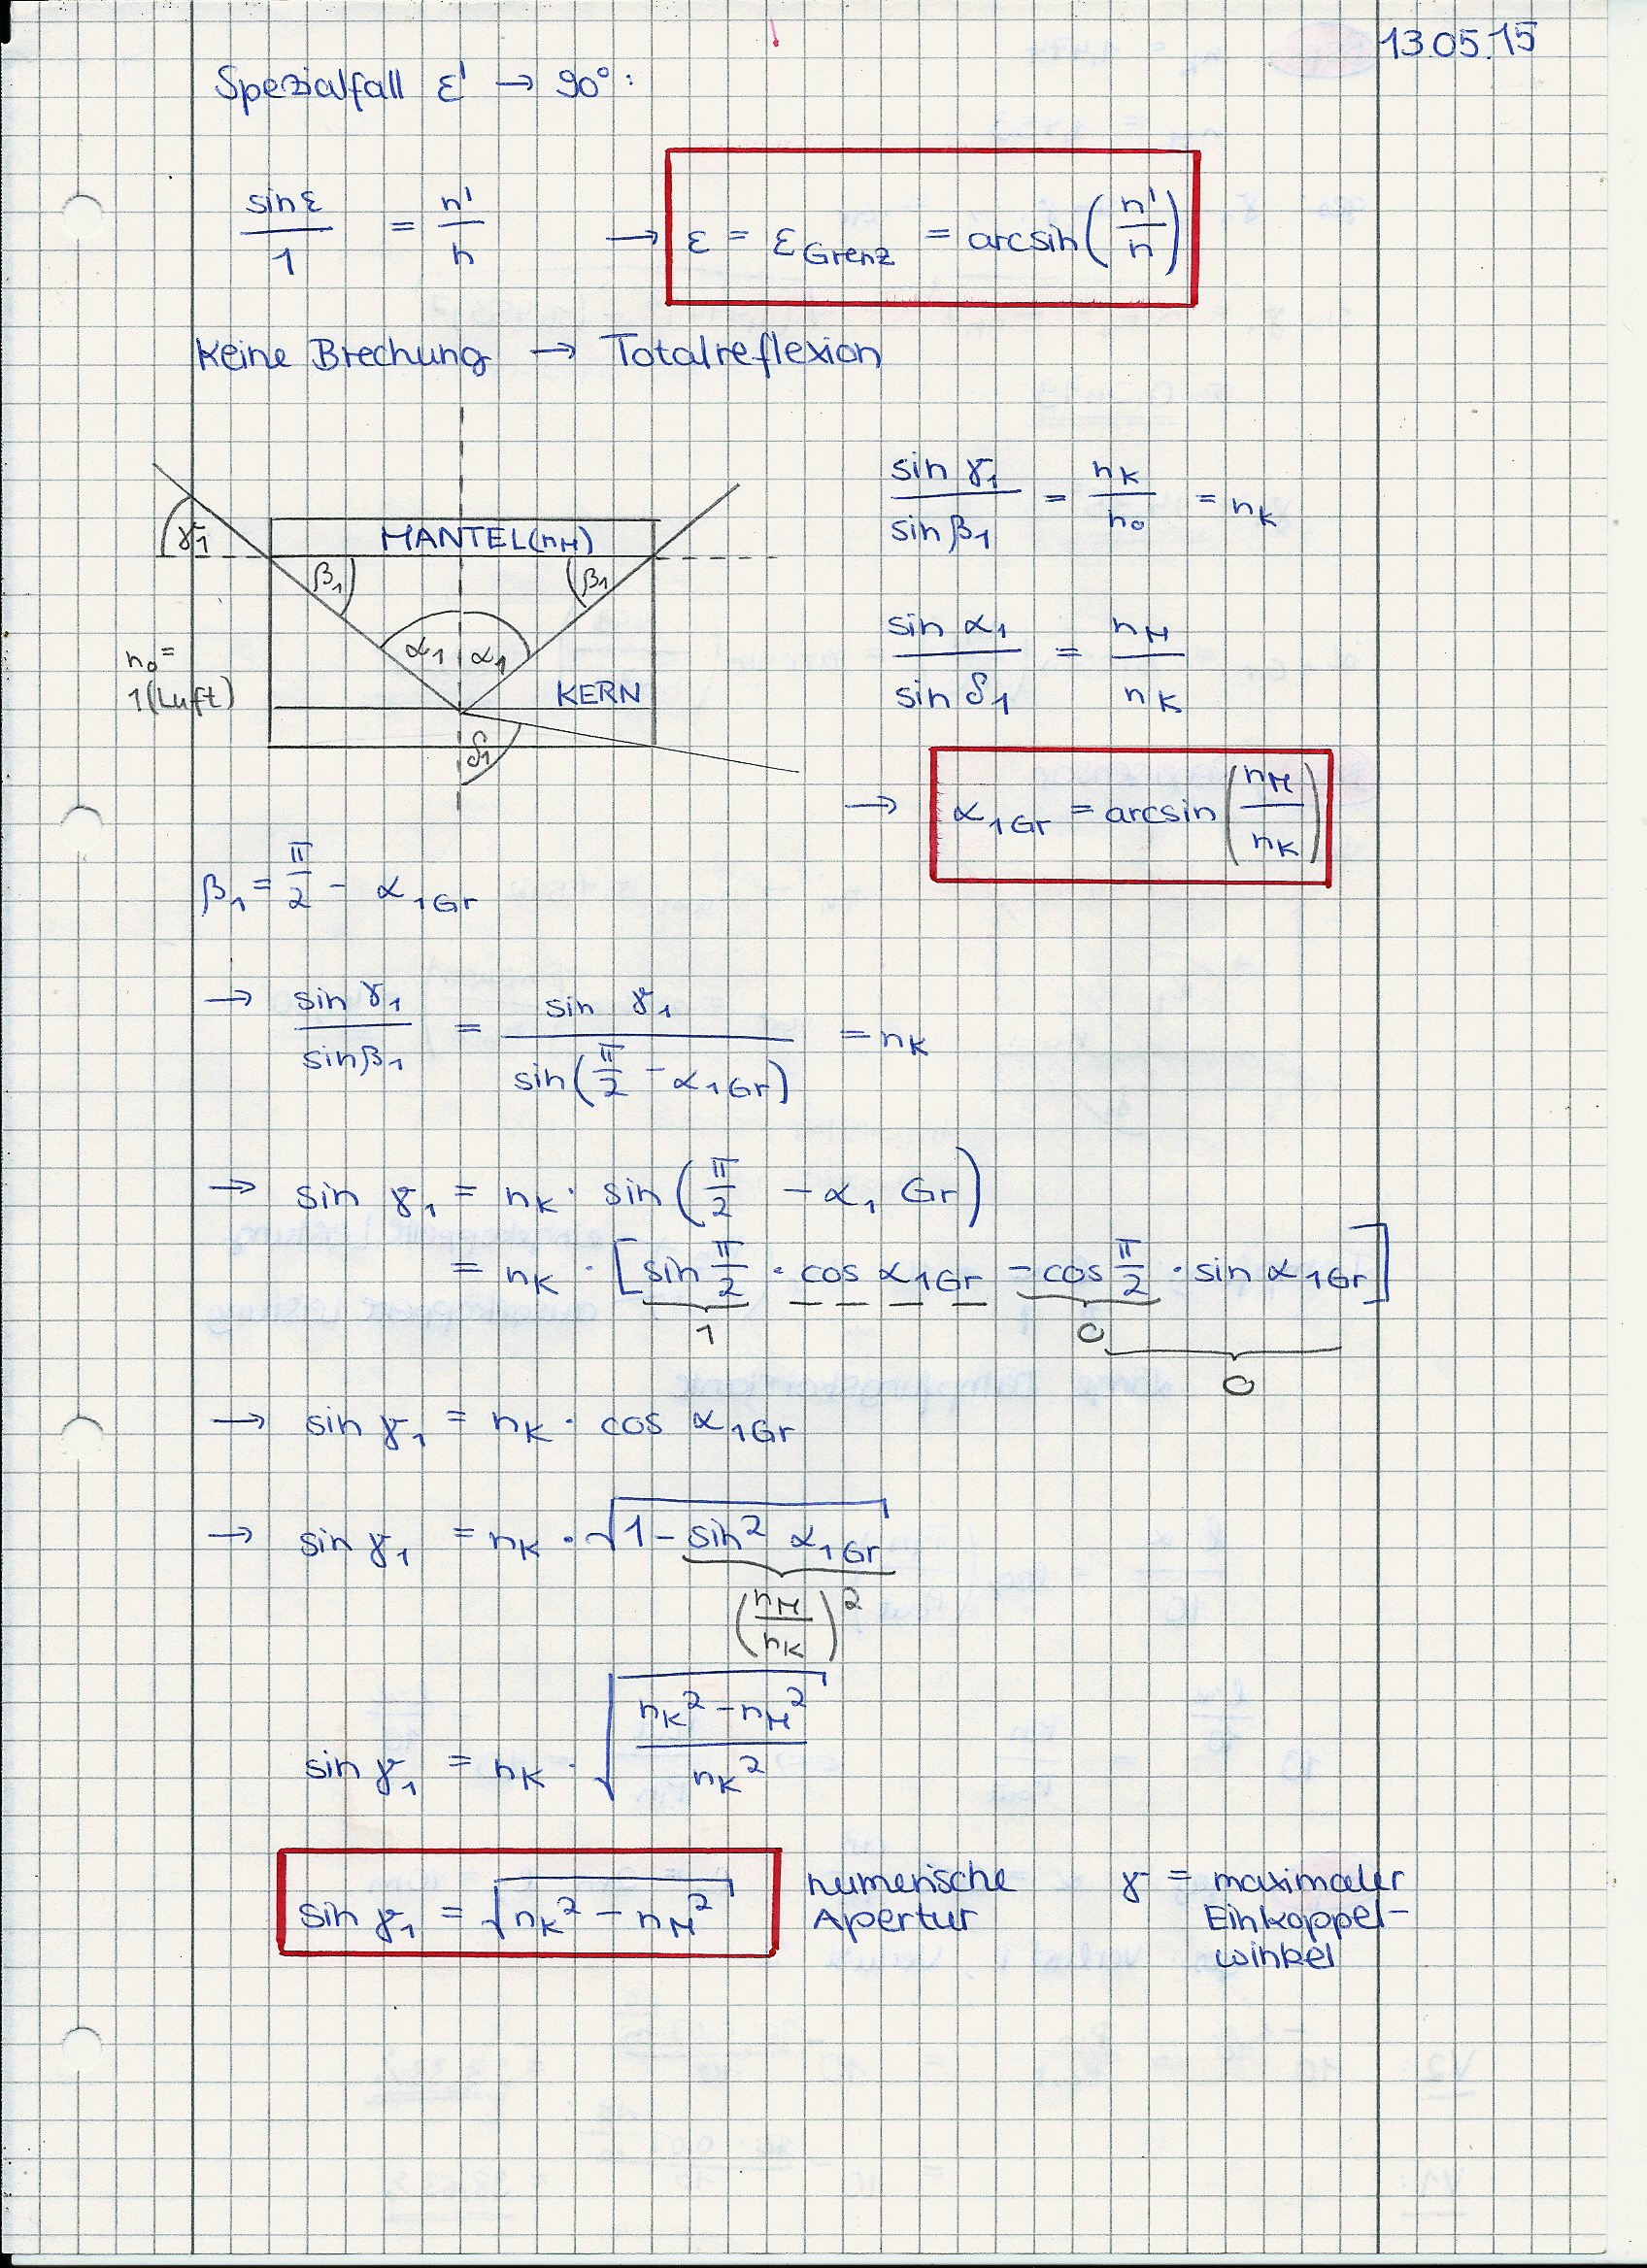 13.05.15
Spezialfall ε' → 90°:
sin ε / 1 = n' / n → ε = ε Grenz = arcsin(n' / n)
Keine Brechung → Totalreflexion
sin γ1 / sin β1 = nK / n0 = nK
γ1
MANTEL(nM)
β1 β1
α1 α1
n0 =
1(Luft)
KERN
δ1
sin α1 / sin δ1 = nM / nK
→ α1Gr = arcsin(nM / nK)
β1 = π/2 - α1Gr
→ sin γ1 / sin β1 = sin γ1 / sin(π/2 - α1Gr) = nK
→ sin γ1 = nK · sin(π/2 - α1 Gr)
= nK · [sin π/2 · cos α1Gr - cos π/2 · sin α1Gr]
1 0
0
→ sin γ1 = nK · cos α1Gr
→ sin γ1 = nK · √(1 - sin² α1Gr)
(nM / nK)²
sin γ1 = nK · √((nK² - nM²) / nK²)
sin γ1 = √(nK² - nM²)
numerische
Apertur
γ = maximaler
Einkoppel-
winkel